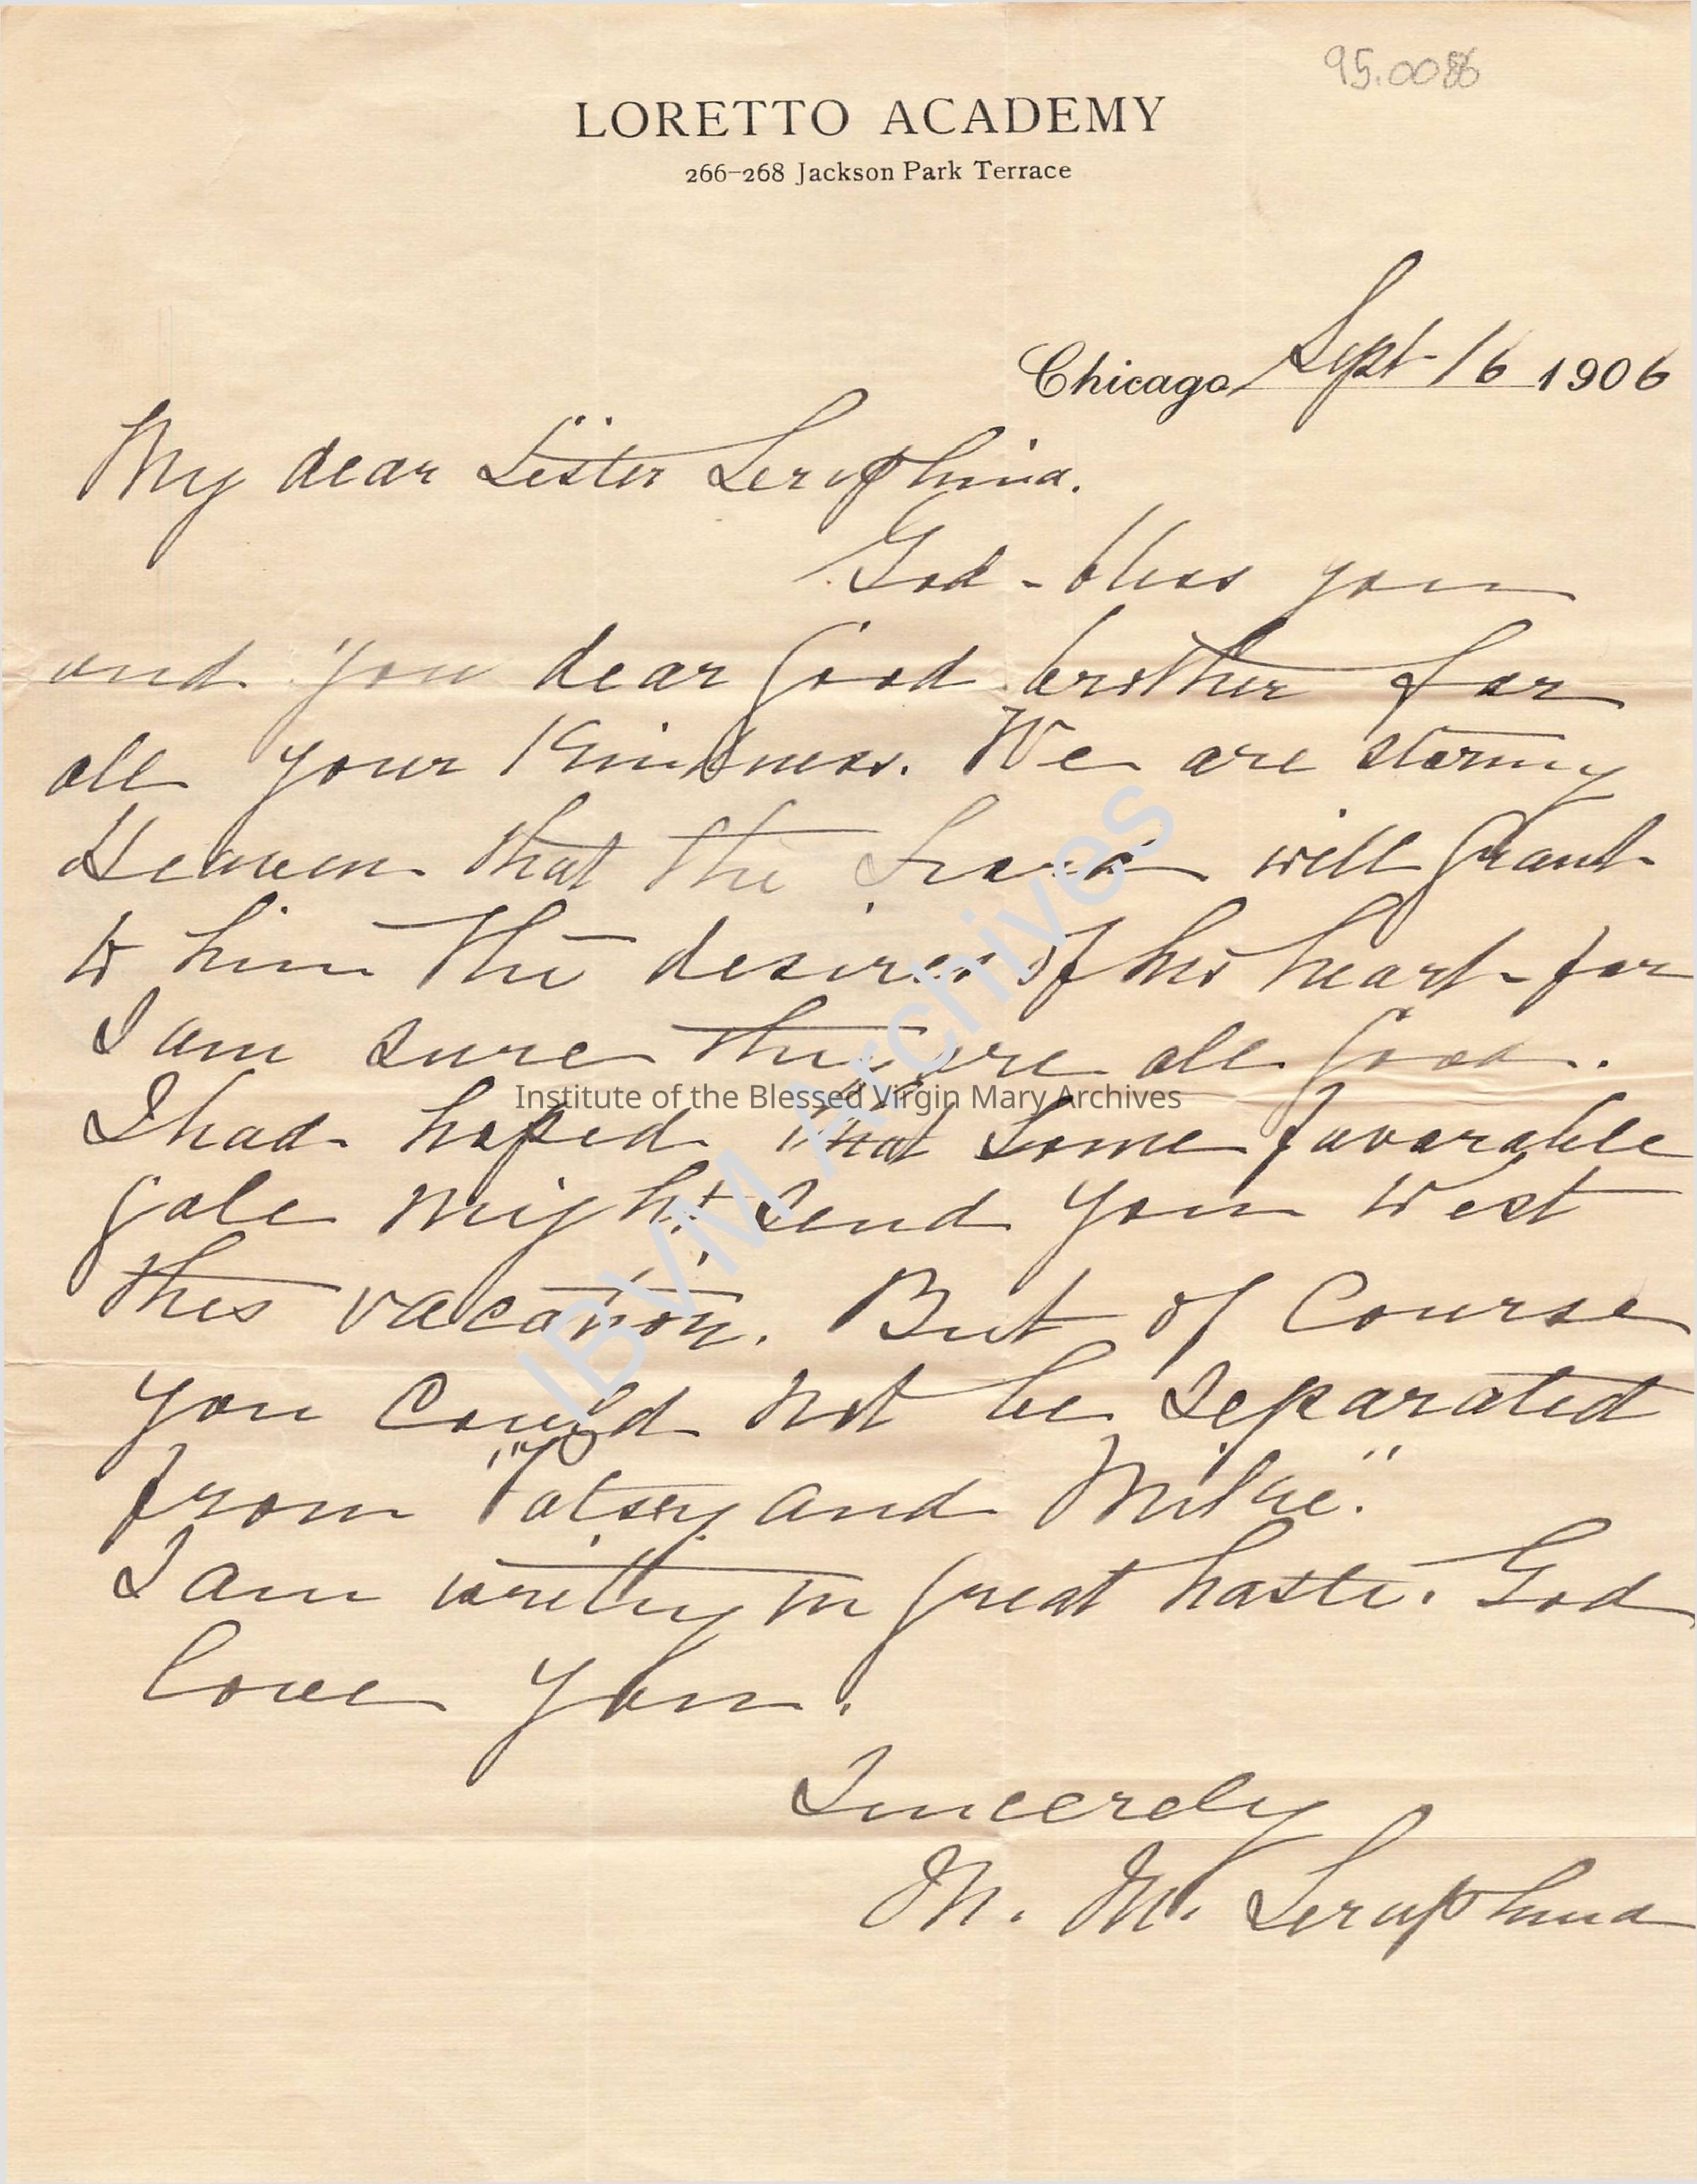 95.0086
LORETTO ACADEMY
266–268 Jackson Park Terrace
Chicago, Sept 16 1906
My dear Sister Seraphina.
God-bless you
and you dear good brother for
all your kindness. We are storming
Heaven that the Lord will grant
to him the desires of his heart-for
I am sure they are all good.
Institute of the Blessed Virgin Mary Archives
I had hoped that some favorable
gale might send you West
this vacation. But of Course
you could not be separated
from "Patsy and Mike."
I am writing in great haste. God
love you.
Sincerely
M. M. Seraphina
IBVM Archives